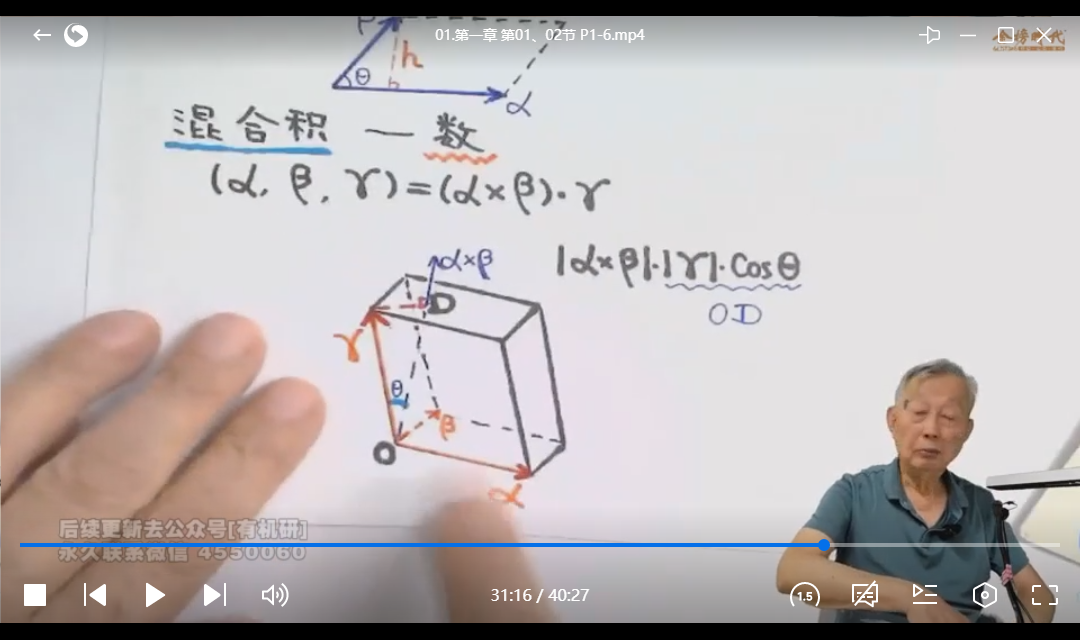 01.第一章 第01、02节 P1-6.mp4
β
h
θ
α
混合积 — 数
(α, β, γ)=(α×β)·γ
α×β
|α×β|·|γ|·Cosθ
D
OD
γ
θ
β
O
α
后续更新去公众号[有机研]
永久联系微信 4550060
31:16 / 40:27
1.5